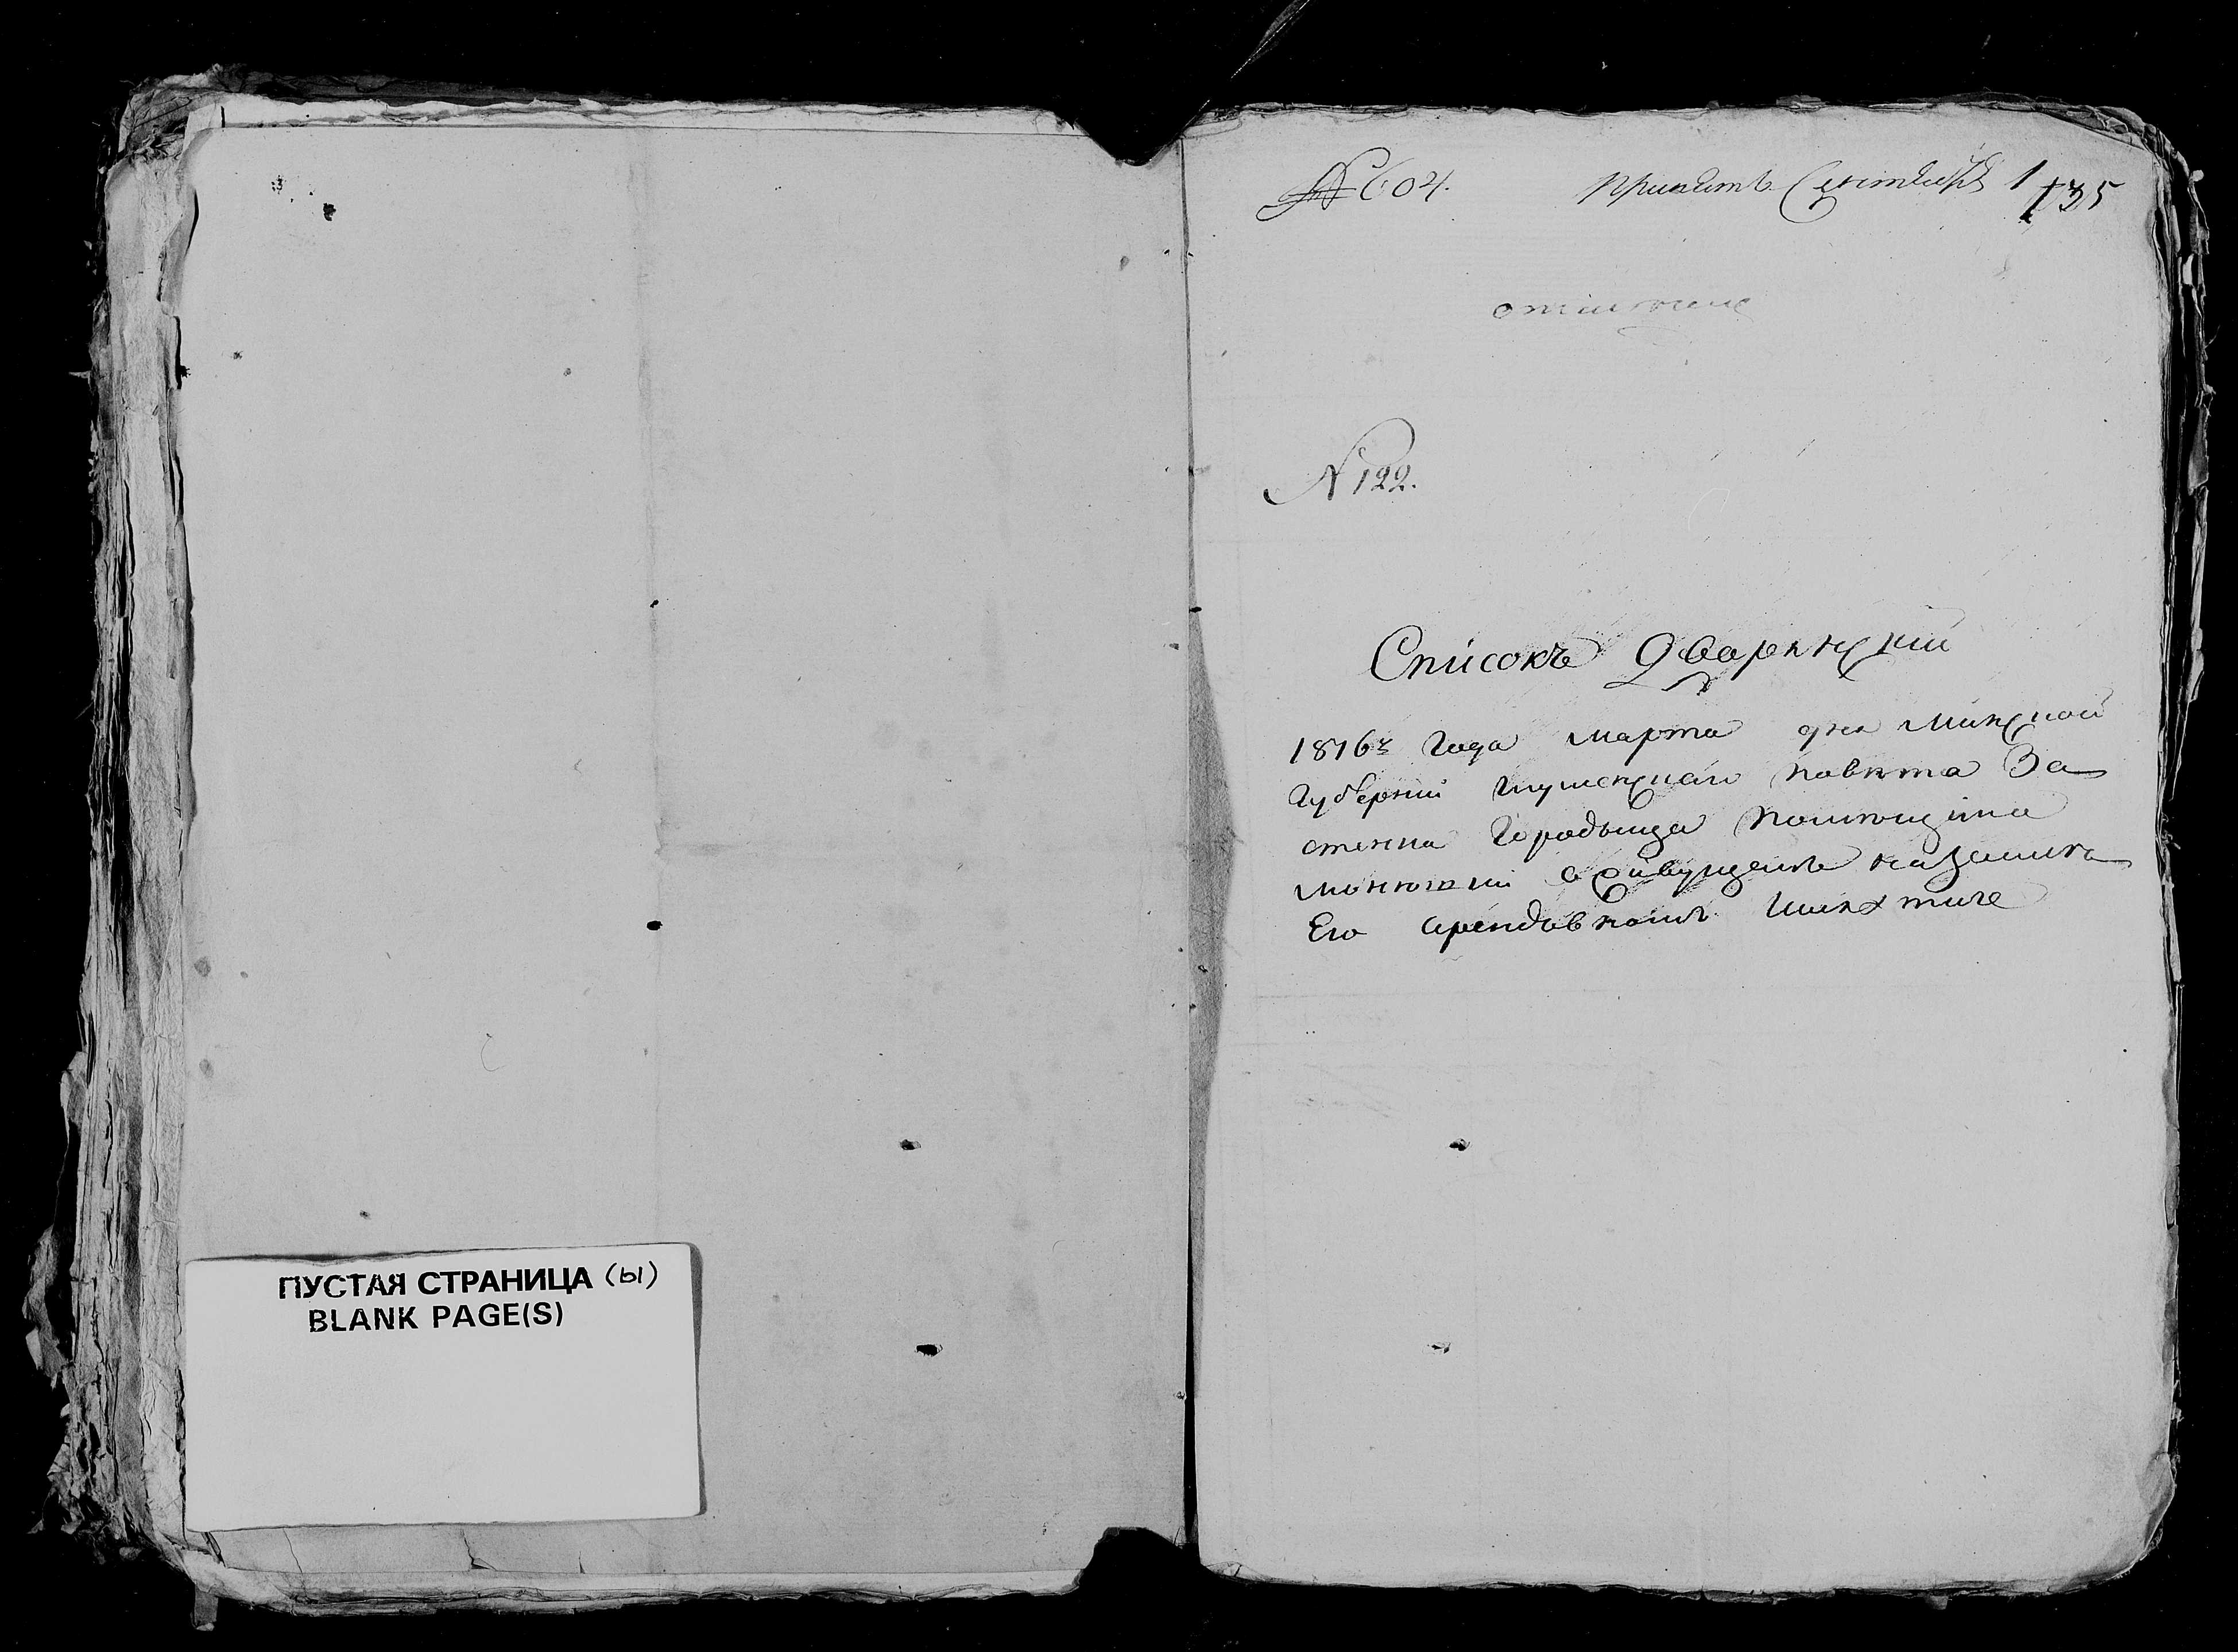 ПУСТАЯ СТРАНИЦА (Ы)
BLANK PAGE(S)
№ 604. принятъ Сентября 1
135
№ 122.
Списокъ Дворянскій
1816г года марта дня Минской
Губерніи Игуменскаго повѣта За
стѣнка Городыща помѣщика
в живущемъ на земли
Его Арендовномъ Шляхтиче